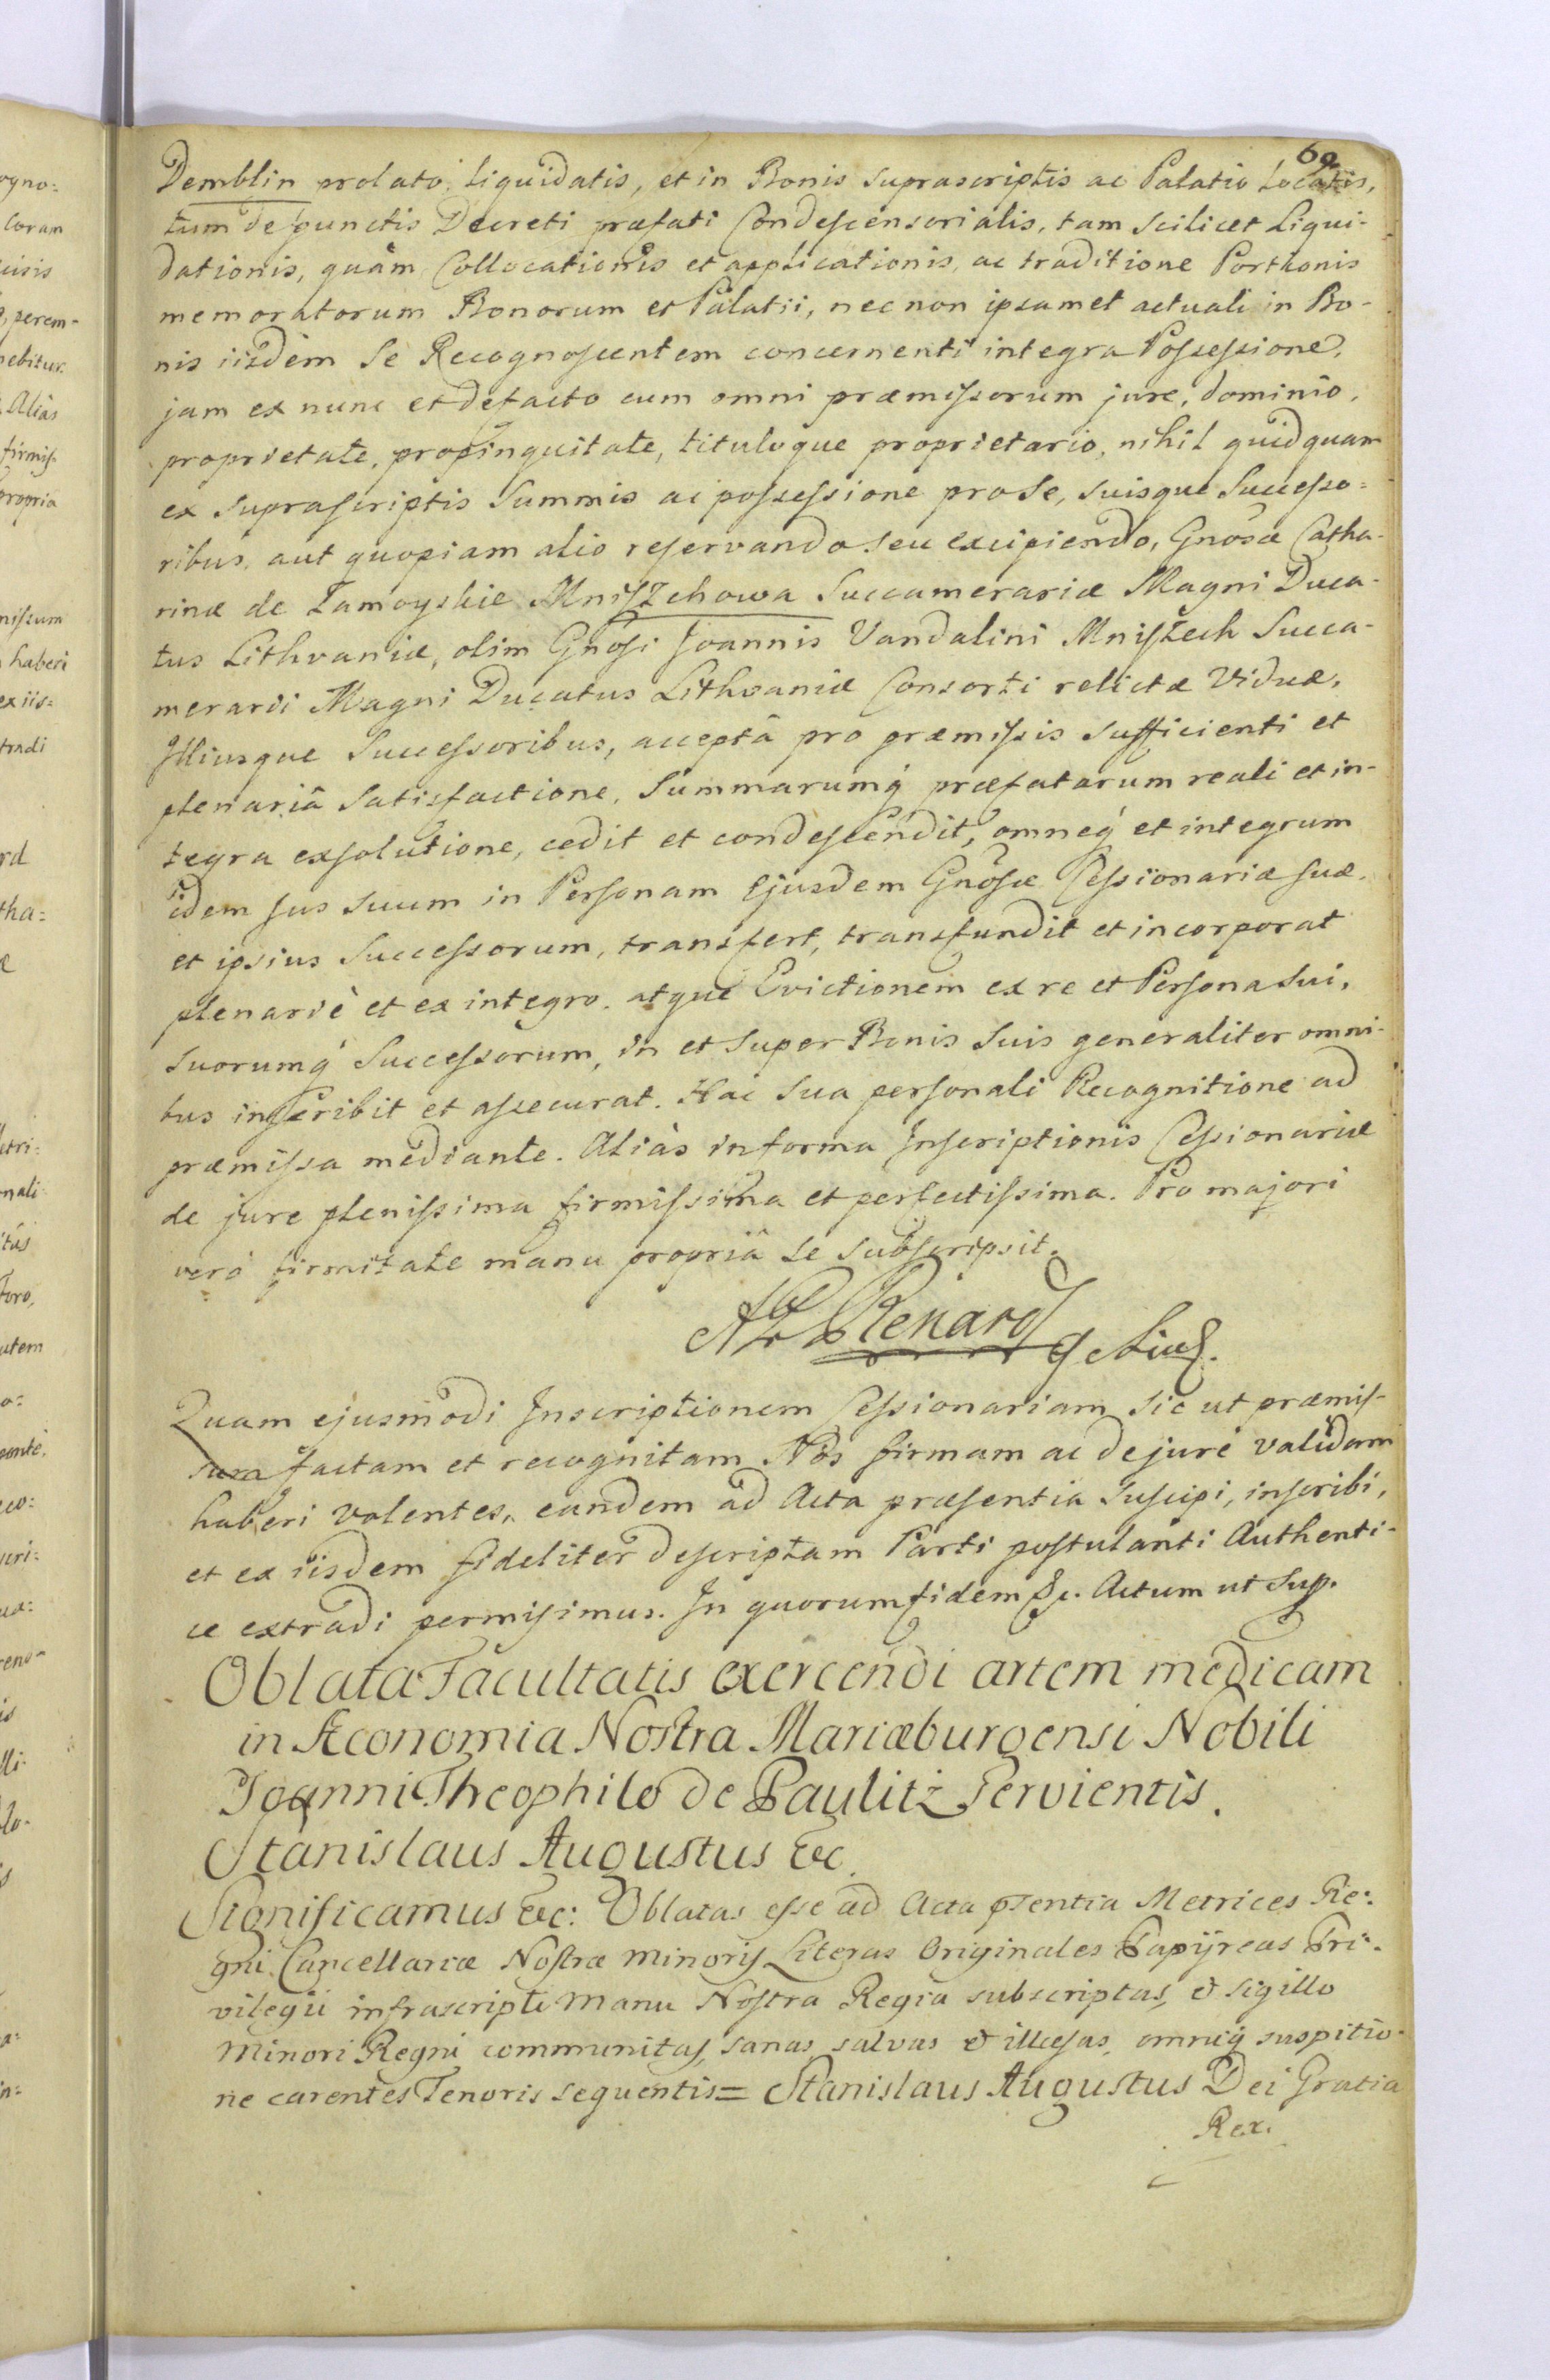 69.
Demblin prolato, liquidatis, et in Bonis suprascriptis ac Palatio Locatis,
tum de punctis Decreti præfati Condescensorialis, tam scilicet Liqui-
dationis, quàm Collocationis et applicationis, ac traditione Porthonis
memoratorum Bonorum et Palatii, nec non ipsamet actuali in Bo-
nis iisdem Se Recognoscentem concernenti integra Possessione,
jam ex nunc et defacto cum omni præmissorum jure, dominio,
proprietate, propinquitate, tituloque proprietario, nihil quidquam
ex suprascriptis Summis ac possessione pro Se, suisque Successo=
ribus, aut quopiam alio reservando seu excipiendo, Gnosæ Catha-
rinæ de Zamoyskie Mniszchowa Succamerariæ Magni Duca-
tus Lithvaniæ, olim Gnosi Joannis Vandalini Mniszech Succa-
merarii Magni Ducatus Lithvaniæ Consorti relictæ Viduæ,
Illiusque Successoribus, acceptâ pro præmissis sufficienti et
plenariâ Satisfactione, Summarumq́ præfatarum reali et in-
tegra exsolutione, cedit et condescendit, omneq́ et integrum
idem Jus suum in Personam Ejusdem Gnosæ Cessionariæ suæ,
et ipsius Successorum, transfert, transfundit et incorporat
plenariè et ex integro. atque Evictionem ex re et Persona sui,
suorumq́ Successorum, in et super Bonis suis generaliter omni-
bus inscribit et assecurat. Hac sua personali Recognitione ad
præmissa mediante. Aliàs in forma Inscriptionis Cessionariæ
de jure plenissima firmissima et perfectissima. Pro majori
verò firmitate manu propriâ se subscripsit.
Renard
Quam ejusmodi Inscriptionem Cessionariam sic ut præmis-
sum factam et recognitam Nos firmam ac de jure validam
haberi volentes, eandem ad Acta præsentia suscipi, inscribi,
et ex iisdem fideliter descriptam Parti postulanti Authenti-
ce extradi permisimus. In quorum fidem &c. Actum ut Sup.
Oblata Facultatis exercendi artem medicam
in Æconomia Nostra Mariæburgensi Nobili
Joanni Theophilo de Paulitz Servientis.
Stanislaus Augustus &c.
Significamus &c: Oblatas esse ad Acta psentia Metrices Re:
gni Cancellariæ Nostræ Minoris Literas Originales Papyreas Pri:
vilegii infrascripti Manu Nostra Regia subscriptas, & sigillo
Minori Regni communitas, sanas salvas & illæsas, omniq́ suspitio-
ne carentes Tenoris sequentis= Stanislaus Augustus Dei Gratia
Rex.